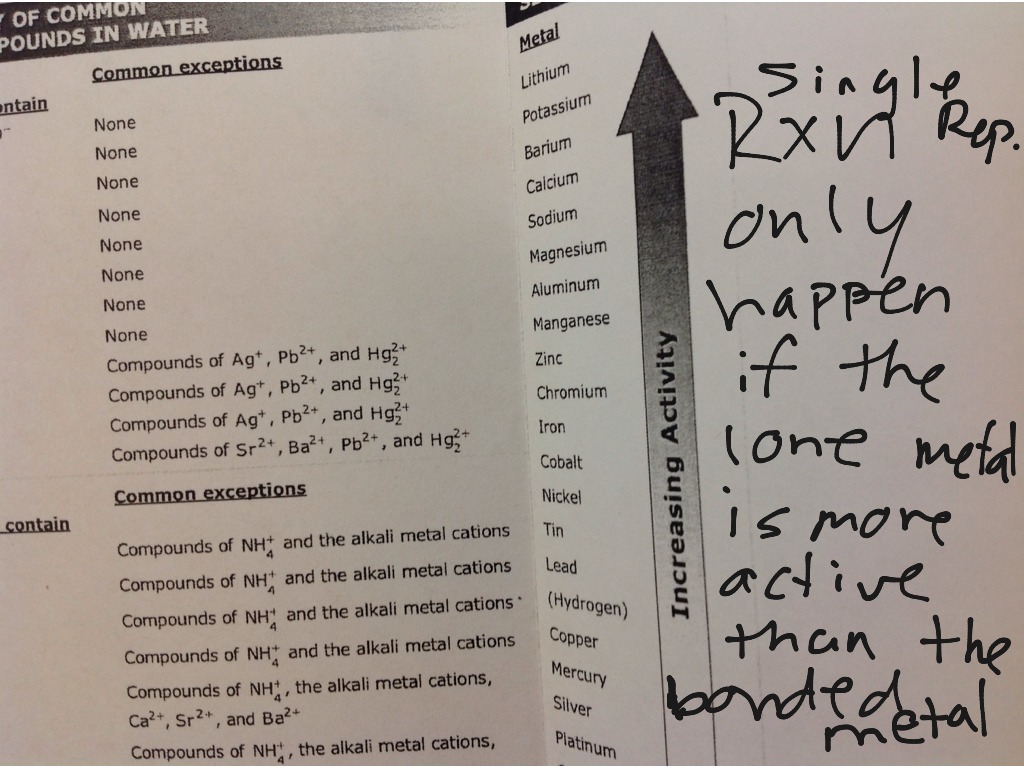 Y OF COMMON
POUNDS IN WATER
Common exceptions
ontain
None
None
None
None
None
None
None
None
Compounds of Ag⁺, Pb²⁺, and Hg₂²⁺
Compounds of Ag⁺, Pb²⁺, and Hg₂²⁺
Compounds of Ag⁺, Pb²⁺, and Hg₂²⁺
Compounds of Sr²⁺, Ba²⁺, Pb²⁺, and Hg₂²⁺
Common exceptions
contain
Compounds of NH₄⁺ and the alkali metal cations
Compounds of NH₄⁺ and the alkali metal cations
Compounds of NH₄⁺ and the alkali metal cations
Compounds of NH₄⁺ and the alkali metal cations
Compounds of NH₄⁺, the alkali metal cations,
Ca²⁺, Sr²⁺, and Ba²⁺
Compounds of NH₄⁺, the alkali metal cations,
Metal
Lithium
Potassium
Barium
Calcium
Sodium
Magnesium
Aluminum
Manganese
Zinc
Chromium
Iron
Cobalt
Nickel
Tin
Lead
(Hydrogen)
Copper
Mercury
Silver
Platinum
Increasing Activity
Single
Rxn Rep.
only
happen
if the
lone metal
is more
active
than the
bonded
metal